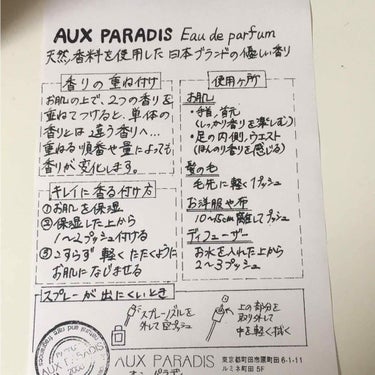 AUX PARADIS Eau de parfum
天然香料を使用した日本ブランドの優しい香り
香りの重ね付け
お肌の上で、2つの香りを
重ねてつけると、単体の
香りとは違う香りへ…
重ねる順番や量によっても
香りが変化します。
キレイに香る付け方
①お肌を保湿
②保湿した上から
1〜2プッシュ付ける
③こすらず軽くたたくように
お肌になじませる
使用ヶ所
お肌
・手首、首元
(しっかり香りを楽しむ)
・足の内側、ウエスト
(ほんのり香りを感じる)
髪の毛
毛先に軽く1プッシュ
お洋服や布
10〜15cm離してプッシュ
ディフューザー
お水を入れた上から
2〜3プッシュ
スプレーが出にくいとき
スプレーノズルを
外して空プッシュ
上の部分を
取り外して
中を軽く拭く
AUX PARADIS
オゥ パラディ
東京都町田市原町田6-1-11
ルミネ町田 5F